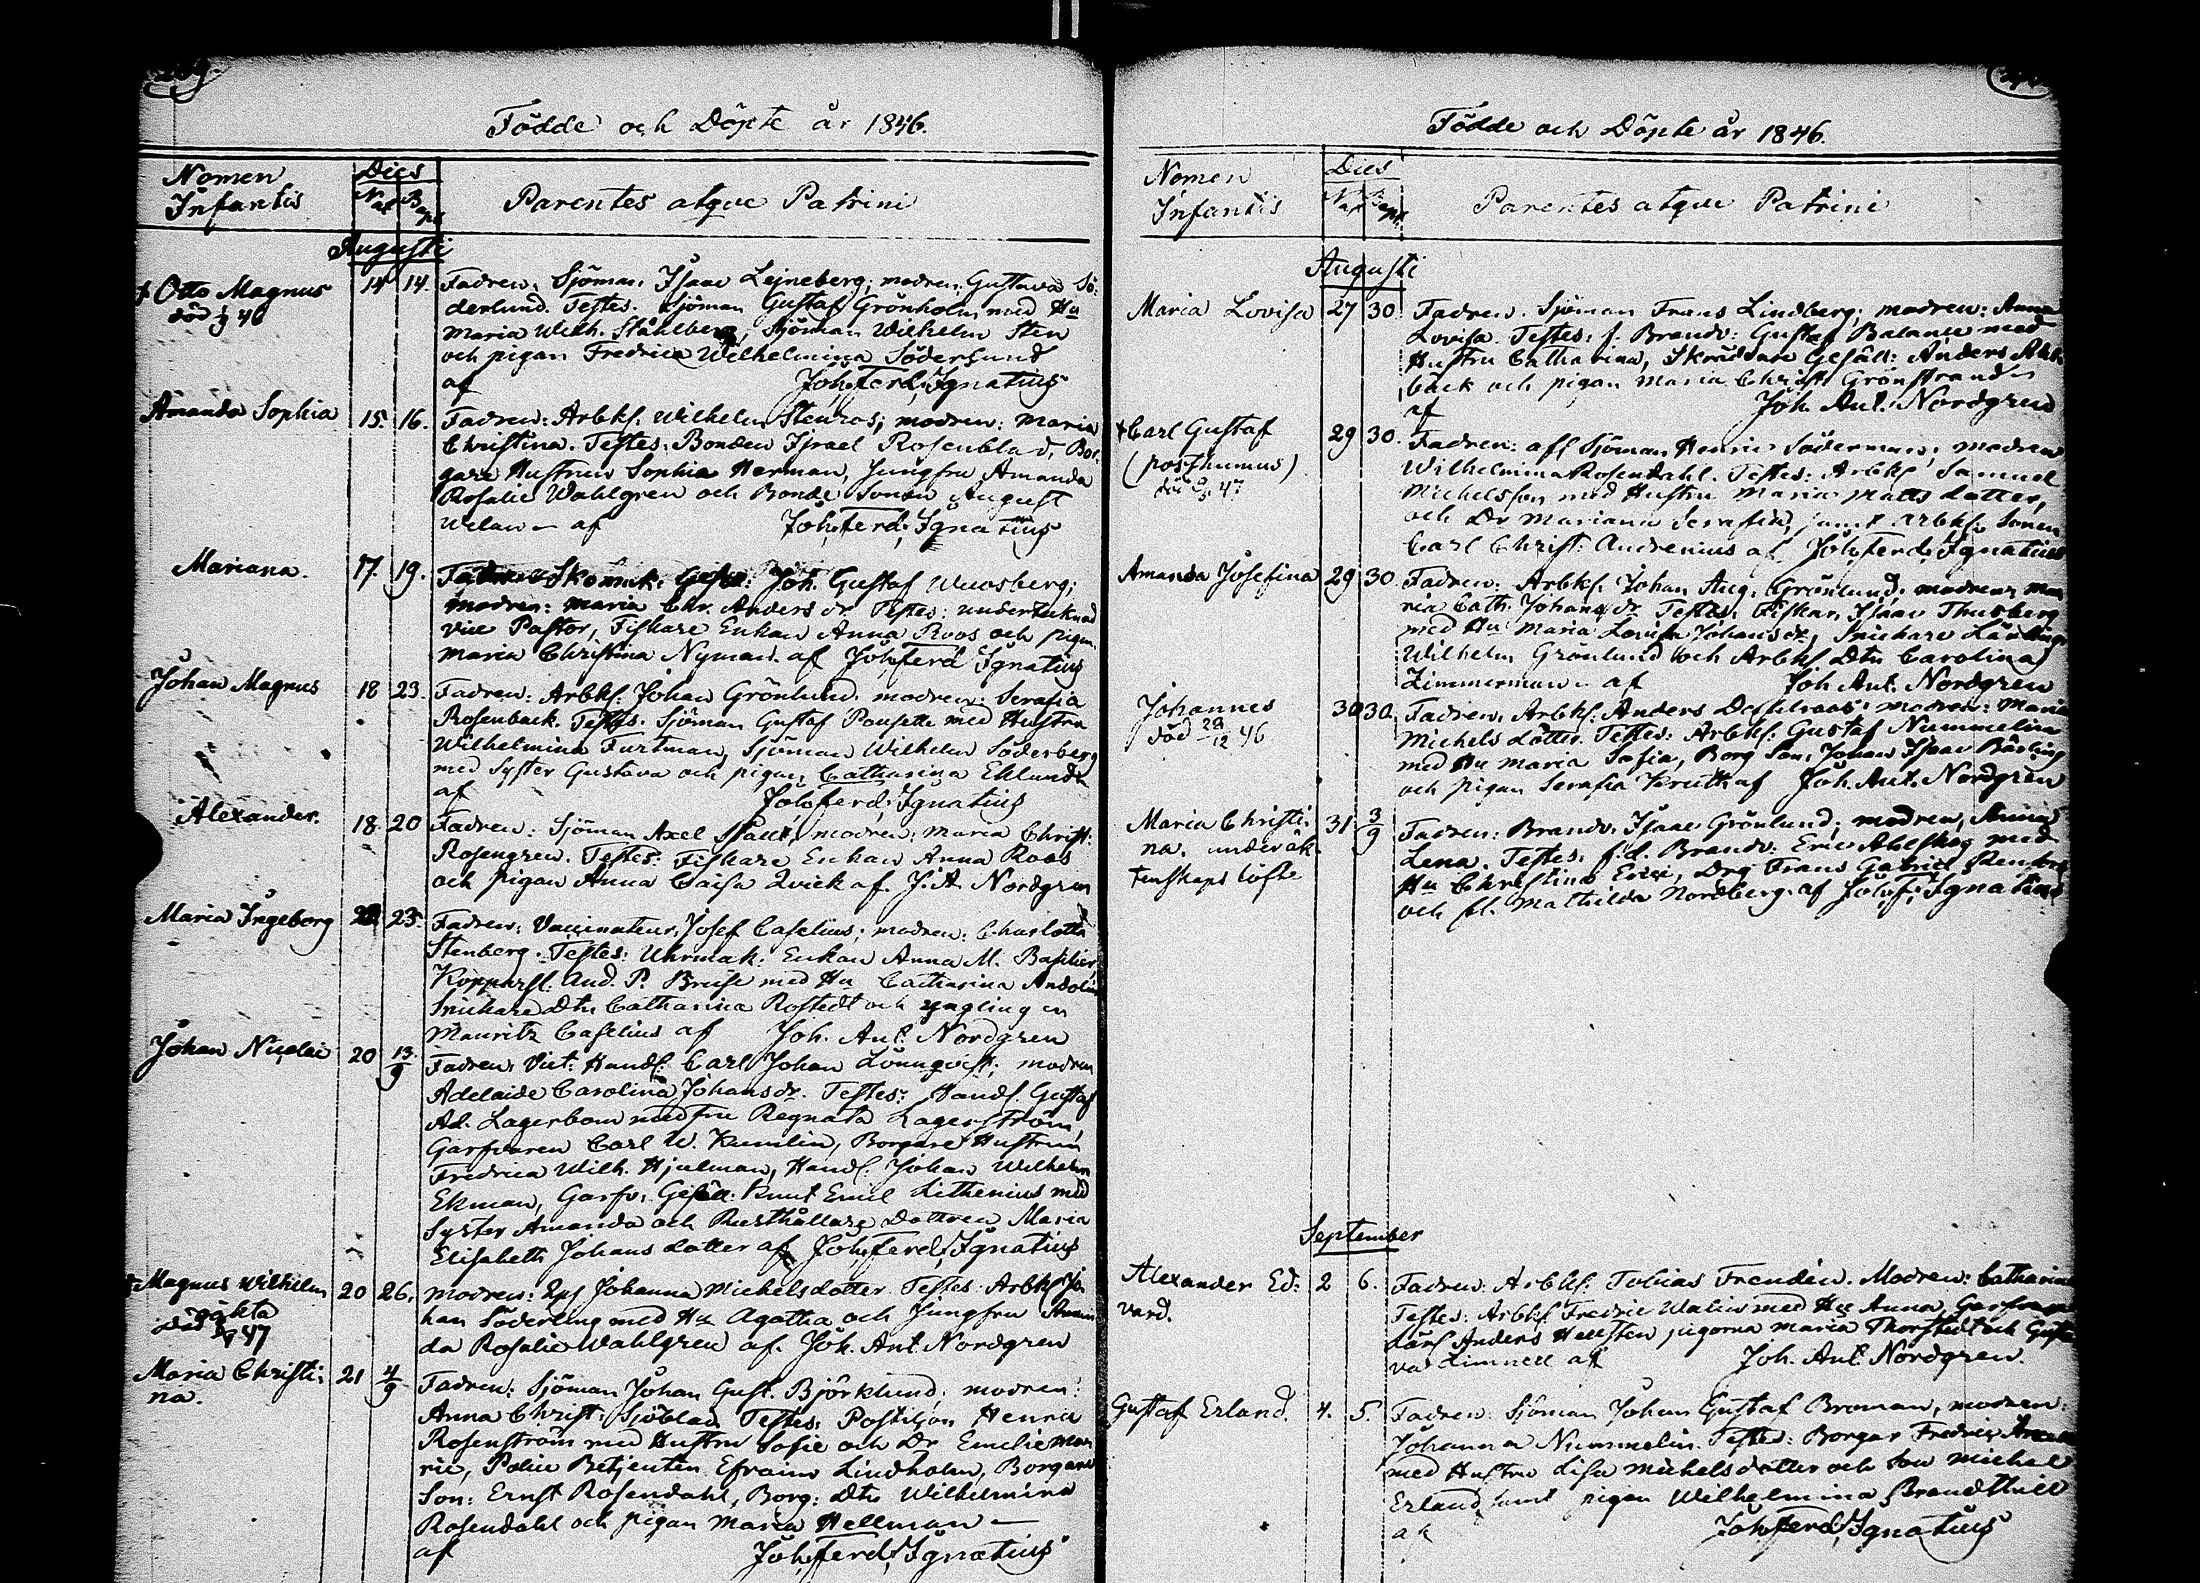 Födde och Döpte år 1846.
Nomen
Infantis
Dies
Nat
Bapt
Parentes atque Patrini
Augusti
† Otto Magnus
död 46
14 14. Fadren: Sjöman Isaac Lejneberg; modren: Gustava Sö-
derlund. Testes: Sjöman Gustaf Grönholm med Hu
Maria Wilh. Stålberg, Sjöman Wilhelm Sten
och pigan Fredrica Wilhelmina Söderlund
af Joh. Ferd. Ignatius
Amanda Sophia
15. 16. Fadren: Arbkl. Wilhelm Stenros; modren: Maria
Christina. Testes: Bonden Israel Rosenblad, Bor-
gare Hustrun Sophia Herman, Jungfru Amanda
Rosalie Wahlgren och Bonde Sonen August
Welan – af Joh. Ferd. Ignatius
Mariana.
17. 19. Fadren Skomak: Gesäll: Joh. Gustaf Wuosberg;
modren: Maria Chr. Anders dr. Testes: undertecknad
vice Pastor, Fiskare Enkan Anna Roos och pigan
Maria Christina Nyman. af Joh. Ferd. Ignatius
Johan Magnus
18 23. Fadren: Arbkl. Johan Grönlund. modren: Serafia
Rosenback. Testes: Sjöman Gustaf Pousette med Hustru
Wilhelmina Furtman, Sjöman Wilhelm Söderberg
med Syster Gustava och pigan Catharina Eklund
af Joh. Ferd. Ignatius
Alexander.
18. 20 Fadren: Sjöman Axel modren: Maria Christ:
Rosengren. Testes: Fiskare Enkan Anna Roos
och pigan Anna Caisa Qvick af. J. A. Nordgren
Maria Ingeborg
23. Fadren: Vaccinateur Josef Caselius; modren: Charlotta
Stenberg. Testes: Uhrmak: Enkan Anna M. Basilier,
Kopparsl. And. P. Breise med Hu Catharina Andolin
Snickare Dtr Catharina Rostedt och ynglingen
Mauritz Caselius af Joh. Ant. Nordgren
Johan Nicolai
20 13/9 Fadren: Vict: Handl: Carl Johan Lönnqvist; modren
Adelaide Carolina Johans dr. Testes: Handl. Gustaf
Ad. Lagerbom med fru Regnata Lagerström,
Garfvaren Carl W. Kumlin, Borgare Hustrun
Fredrica Wilh. Hjulman, Handl. Johan Wilhelm
Ekman, Garfv. Gesäll: Knut Emil Lithenius med
Syster Amanda och Rusthållare Dottren Maria
Elisabeth Johans dotter af Joh. Ferd. Ignatius
† Magnus Wilhelm
oäkta
död 47
20 26. Modren: Qps Johanna Michelsdotter. Testes: Arbkl Jo-
han Söderling med Hu Agatha och Jungfru Aman
da Rosalie Wahlgren af. Joh. Ant Nordgren
Maria Christi-
na.
21 4/9 Fadren: Sjöman Johan Gust. Björklund; modren:
Anna Christ: Sjöblad. Testes: Postiljon Henric
Rosenström med Hustru Sofie och Dr Emelie Ma-
rie, Police Betjenten Efraim Lindholm, Borgare
Son: Ernst Rosendahl, Borg: Dtr Wilhelmina
Rosendahl och pigan Maria Hellman –
af Joh. Ferd. Ignatius
Födde och Döpte år 1846.
Nomen
Infantis
Dies
Nat Bapt
Parentes atque Patrini
Augusti
Maria Lovisa
27 30 Fadren: Sjöman Frans Lindberg; modren: Anna
Lovisa. Testes: f. Brandv: Gustaf Balange med
Hustru Catharina, Skräddare Gesäll: Anders
bäck och pigan Maria Christ Grönstrand
af Joh. Ant. Nordgren
† Carl Gustaf
(posthumus)
död 47
29 30. Fadren: afl Sjöman Henric Söderman; modren
Wilhelmina Rosendahl. Testes: Arbkl Samuel
Michelsson med Hustru Maria Mattsdotter,
och Dr Mariana Serafia, samt Arbkl. Sonen
Carl Christ: Andrenius af Joh. Ferd. Ignatius
Amanda Josefina
29 30. Fadren: Arbkl. Johan Aug. Grönlund; modren: Ma-
ria Cath: Johans dr Testes: Fiskar. Isaac Thusberg
med Hu Maria Lovisa Johansdr, Snickare Lärling
Wilhelm Grönlund och Arbkl Dtr Carolina
Zimmerman – af Joh Ant. Nordgren
Johannes
död 29/12 46
30 30. Fadren: Arbkl: Anders modren: Maria
Michels dotter. Testes: Arbkl. Gustaf Nummelin
med Hu Maria Safia, Borg Son: Johan Isaac Bärling
och pigan Serafia Kruth af Joh. Ant. Nordgren
Maria Christi-
na. under äk-
tenskaps löfte
31 3/9 Fadren: Brandv. Isaac Grönlund; modren, Anna
Lena. Testes: f.d. Brandv: Eric Abelskog med
Hu Christina Eric, Drg Frans Gabriel
och pl. Mathilda Nordberg. af Joh. F. Ignatius
September
Alexander Ed-
vard.
2 6. Fadren: Arbkl. Tobias Frenden. Modren: Catharina
Testes: Arbkl Fredric Walin med Hu Anna, Garfvare
Lärl Anders Hellsten pigorna Maria Thorstedt och Gusta-
va Limnell af Joh. Ant. Nordgren.
Gustaf Erland.
4. 5. Fadren: Sjöman Johan Gustaf Broman, modren:
Johanna Nummelin. Testes: Borgar Fredric
med Hustru Lisa Michelsdotter och Son Michel
Erland, samt pigan Wilhelmina Brandthill
af Joh. Ferd. Ignatius